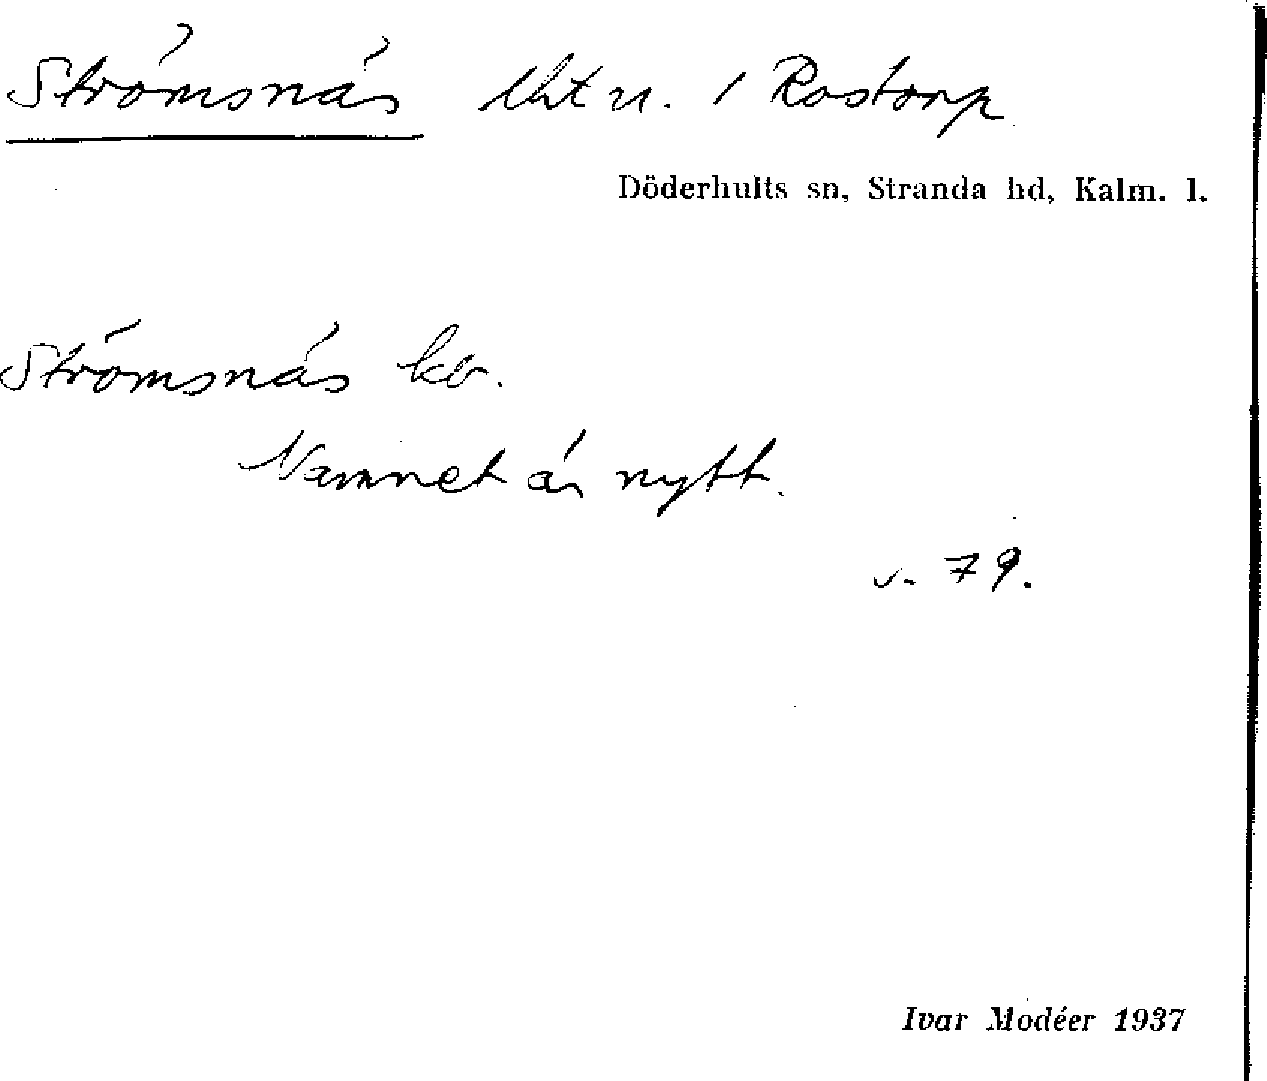 Strömsnäs lht u. / Rostorp
Döderhults sn, Stranda hd, Kalm. l.
Strömsnäs kb.
Namnet är nytt.
s. 79.
Ivar Modéer 1937